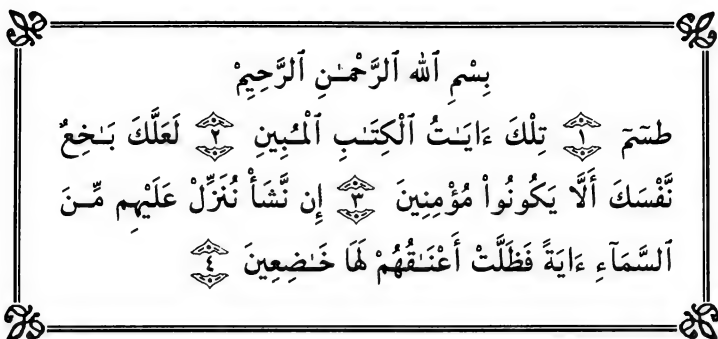 بِسْمِ ٱللَّه ٱلرَّحْمَـٰنِ ٱلرَّحِيمْ
طسٓمٓ ١ تِلْكَ ءَايَـٰتُ ٱلْكِتَـٰبِ ٱلْمُبِينِ ٢ لَعَلَّكَ بَـٰخِعٌ
نَّفْسَكَ أَلَّا يَكُونُوا۟ مُؤْمِنِينَ ٣ إِن نَّشَأْ نُنَزِّلْ عَلَيْهِم مِّـنَ
ٱلسَّمَآءِ ءَايَةً فَظَلَّتْ أَعْنَـٰقُهُمْ لَهَا خَـٰضِعِينَ ٤